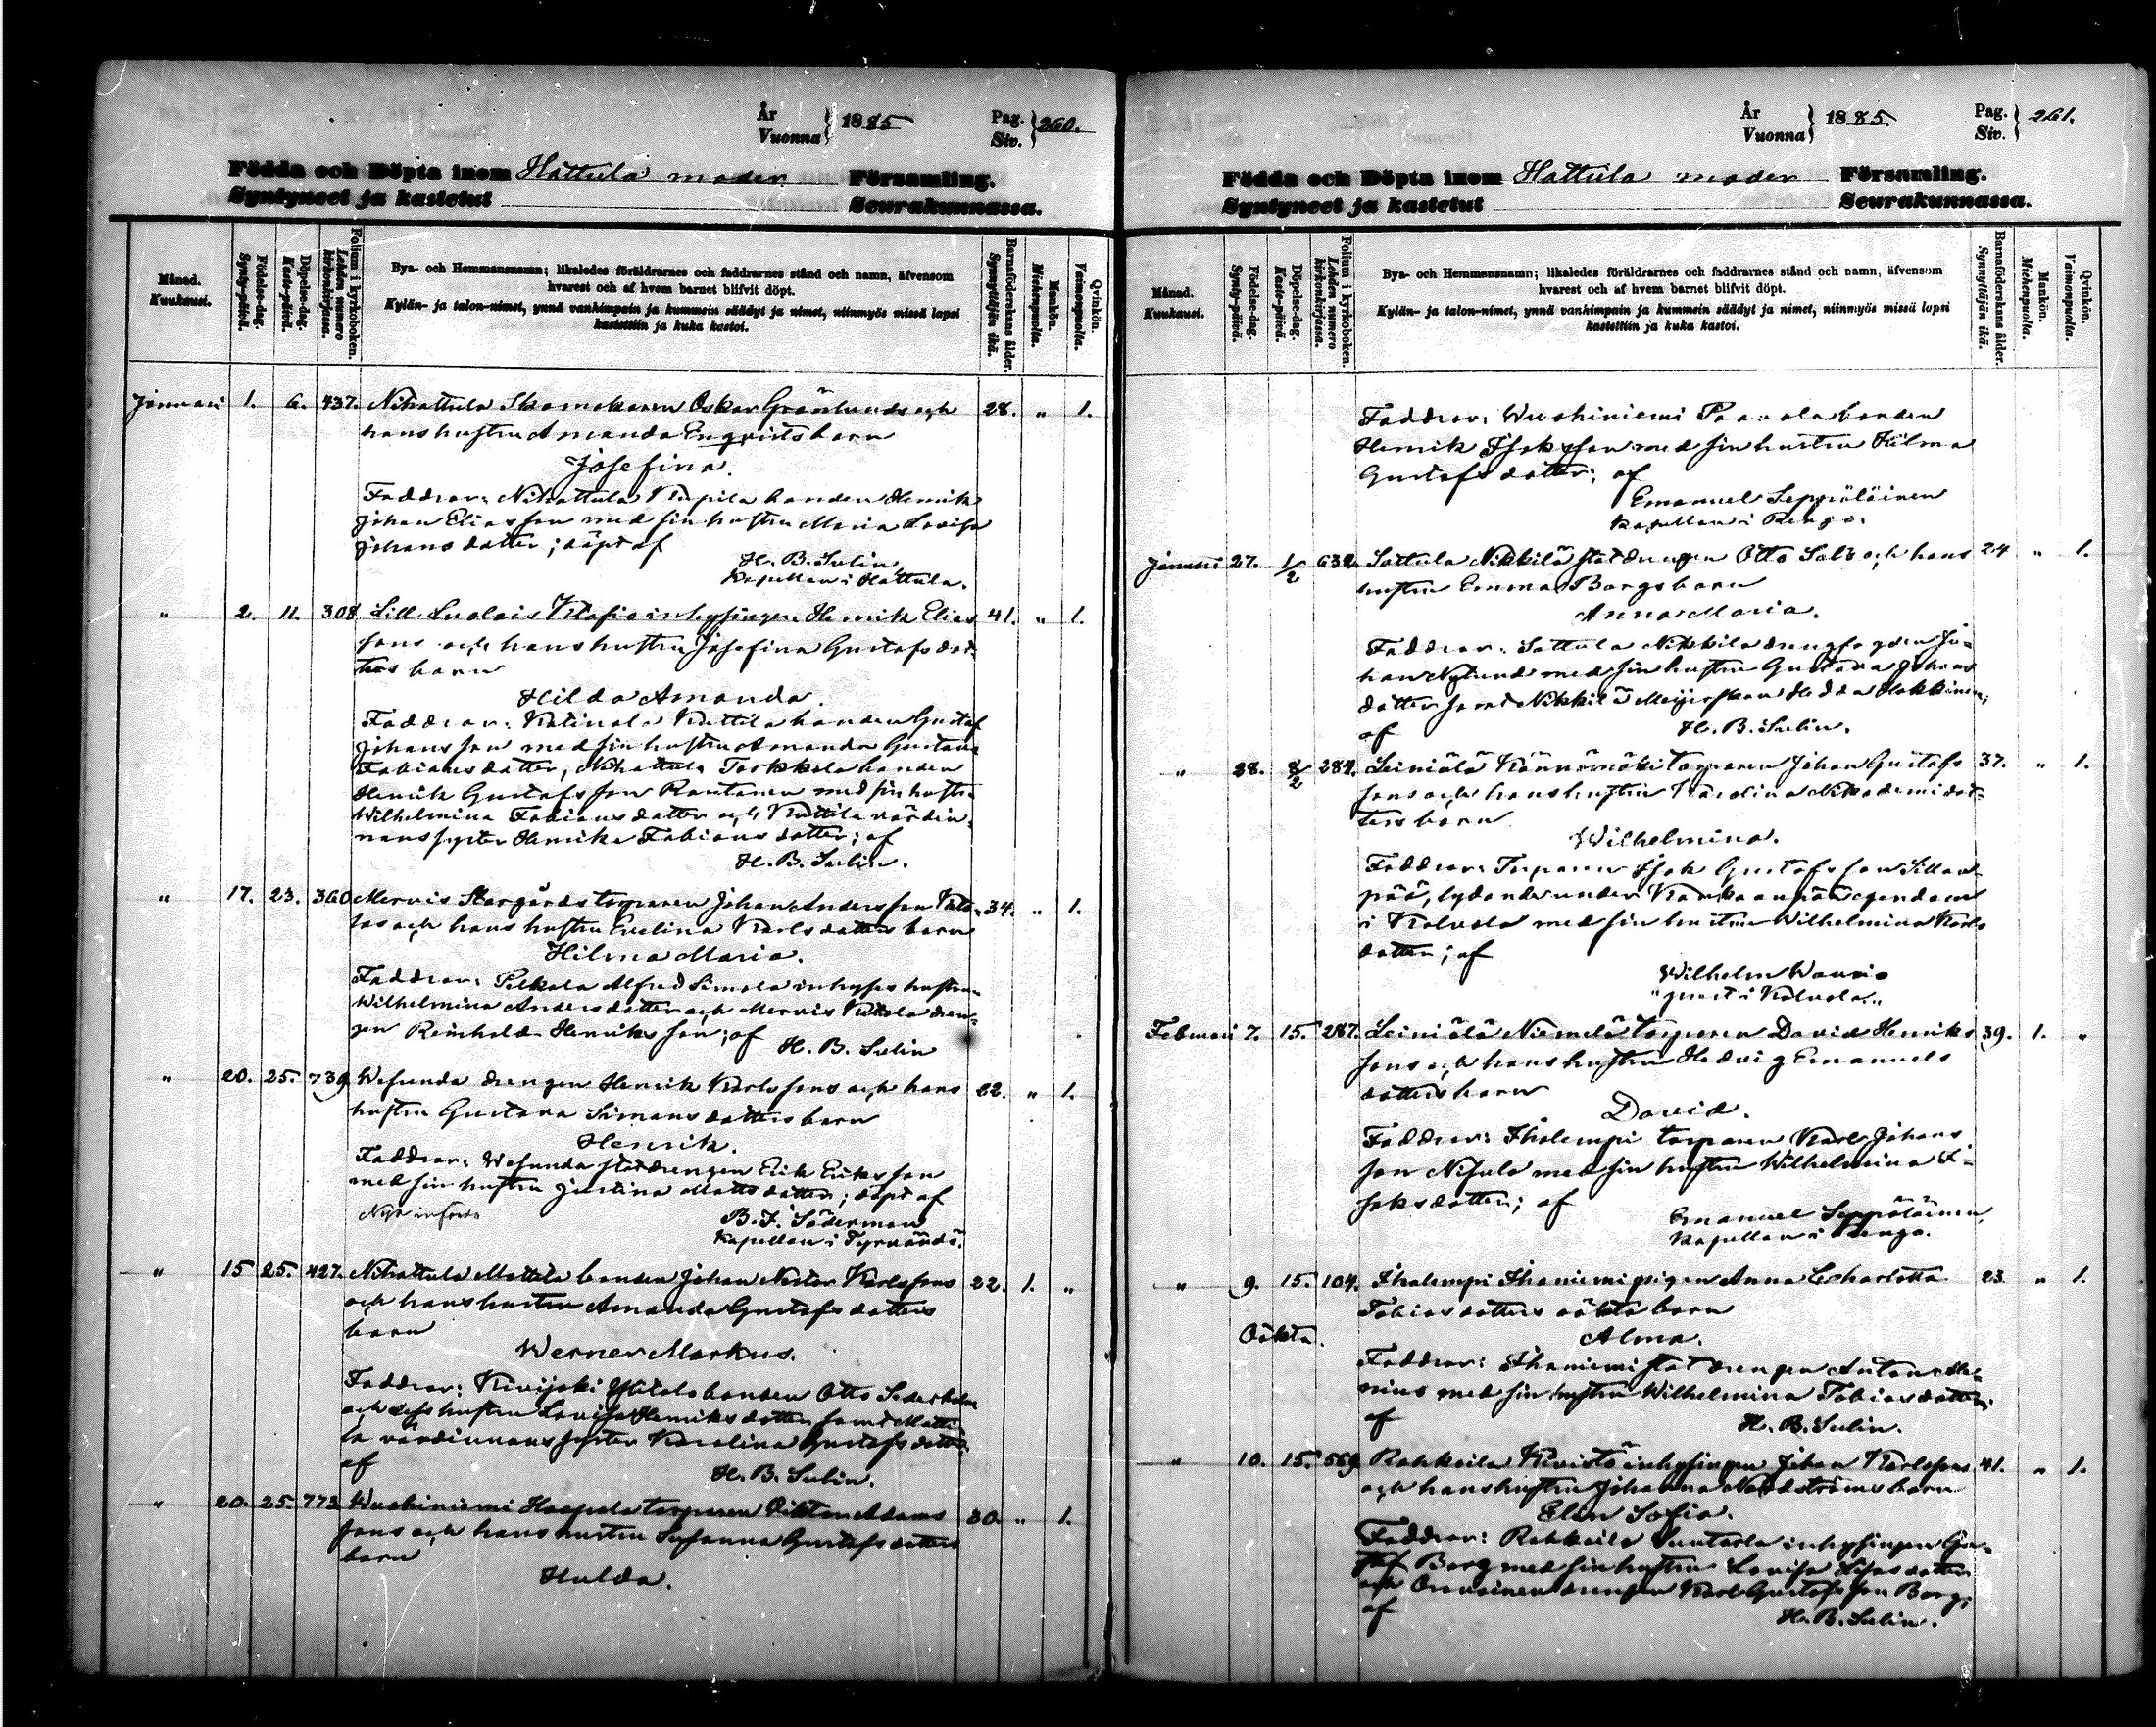 År
Vuonna } 1885 Pag.
Siv. } 260.
Födda och Döpta inom Hattula moder Församling.
Syntyneet ja kastetut Seurakunnassa.
Månad.
Kuukausi.
Födelse-dag.
Synty-päivä.
Döpelse-dag.
Kaste-päivä.
Folium i kyrkoboken.
Lehden numero
kirkonkirjassa.
Bya- och Hemmansnamn; likaledes föräldrarnes och faddrarnes stånd och namn, äfvensom
hvarest och af hvem barnet blifvit döpt.
Kylän- ja talon-nimet, ynnä vanhimpain ja kummein säädyt ja nimet, niinmyös missä lapsi
kastettiin ja kuka kastoi.
Barnaföderskans ålder.
Synnyttäjän ikä.
Mankön.
Miehenpuolta.
Qvinkön.
Vaimonpuolta.
Januari 1. 6. 437. Nihattula Skomakaren Oskar Grönlunds och 28. " 1.
hans hustru Amanda Engvists barn
Josefina.
Faddrar: Nihattula bonden Henrik
Johan Eliasson med sin hustru Maria Lovisa
Johansdotter; döpt af
H. B. Sulin,
Kapellan i Hattula.
" 2. 11. 308 Lill Luolais inhysingen Henrik Elias 41. " 1.
sons och hans hustru Josefina Gustafsdot-
ters barn
Hilda Amanda.
Faddrar: Kuttila bonden Gustaf
Johansson med sin hustru Amanda Gustava
Fabiansdotter, Nihattula bonden
Henrik Gustafsson Rantanen med sin hustru
Wilhelmina Fabiansdotter och Kuttila värdin-
nans syster Henrika Fabiansdotter; af
H. B. Sulin.
" 17. 23. 360 Mervis Storgårds torparen Johan Andersson 34. " 1.
och hans hustru Evelina Karlsdotters barn
Hilma Maria.
Faddrar: Pelkola Alfred Simola inhyses hustrun
Wilhelmina Andersdotter och Mervis dren-
gen Reinhold Henriksson; af H. B. Sulin
" 20. 25. 739 Wesunda drengen Henrik Karlssons och hans 22. " 1.
hustru Gustava Simonsdotters barn
Henrik.
Faddrar: Wesunda statdrengen Erik Eriksson
med sin hustru Justina Mattsdotter; döpt af
B. F. Söderman
Kapellan i Tyrvändö.
" 15 25. 427. Nihattula Mattila bonden Johan Nestor Karlssons 22. 1. "
och hans hustru Amanda Gustafsdotters
barn
Werner Markus.
Faddrar: bonden Otto
och dess hustru Lovisa Henriksdotter samt Matti-
la värdinnans syster Karolina Gustafsdotter
af
H. B. Sulin.
" 20. 25. 773 Wuohiniemi Haapala torparen Viktor Adams 30. " 1.
sons och hans hustru Susanna Gustafsdotters
barn
Hulda.
År
Vuonna } 1885. Pag.
Siv. } 261.
Födda och Döpta inom Hattula moder Församling.
Syntyneet ja kastetut Seurakunnassa.
Månad.
Kuukausi.
Födelse-dag.
Synty-päivä.
Döpelse-dag.
Kaste-päivä.
Folium i kyrkoboken.
Lehden numero
kirkonkirjassa.
Bya- och Hemmansnamn; likaledes föräldrarnes och faddrarnes stånd och namn, äfvensom
hvarest och af hvem barnet blifvit döpt.
Kylän- ja talon-nimet, ynnä vanhimpain ja kummein säädyt ja nimet, niinmyös missä lapsi
kastettiin ja kuka kastoi.
Barnaföderskans ålder.
Synnyttäjän ikä.
Mankön.
Miehenpuolta.
Qvinkön.
Vaimonpuolta.
Faddrar: Wuohiniemi Paavola bonden
Henrik Isaksson med sin hustru Hilma
Gustafsdotter; af
Emanuel Seppäläinen
kapellan i Rengo.
Januari 27. 1/2 632. Sattula Nikkilä statdrengen Otto Salo och hans 24 " 1.
hustru Emma Borgs barn
Anna Maria.
Faddrar: Sattula Nikkilä drengfogden Jo-
han Nylund med sin hustru Gustava Johans
dotter samt Nikkilä Meijerskan Hedda Hakkinen;
af H. B. Sulin.
" 28. 8/2 284. Leiniälä torparen Johan Gustafs 37. " 1.
sons och hans hustru Karolina Nikodemidot-
ters barn
Wilhelmina.
Faddrar: Torparen Isak Gustafsson Sillan-
pää, lydande under Kankaanpää egendom
i Kalvola med sin hustru Wilhelmina Karls
dotter; af
Wilhelm
"prest i Kalvola."
Februari 7. 15. 287. Leiniälä Niemelä torparen David Henriks 39. 1. "
sons och hans hustru Hedvig Emanuels
dotters barn
David.
Faddrar: Ihalempi torparen Karl Johans
son Nisula med sin hustru Wilhelmina I-
saksdotter; af
Emanuel Seppäläinen,
kapellan i Rengo.
" 9. 15. 104. Ihalempi Ihaniemi pigan Anna Charlotta 23 " 1.
Tobiasdotters oäkta barn
Oäkta. Alma.
Faddrar: Ihaniemi statdrengen Anton
med sin hustru Wilhelmina Tobiasdotter;
af H. B. Sulin.
" 10. 15. 569 Rahkoila Kuisto inhysingen Johan Karlssons 41. " 1.
och hans hustru Johanna Nordströms barn
Elin Sofia.
Faddrar: Rahkoila inhysingen Gu-
staf Borg med sin hustru Lovisa
och drengen Karl Gustafsson Borg;
af
H. B. Sulin.